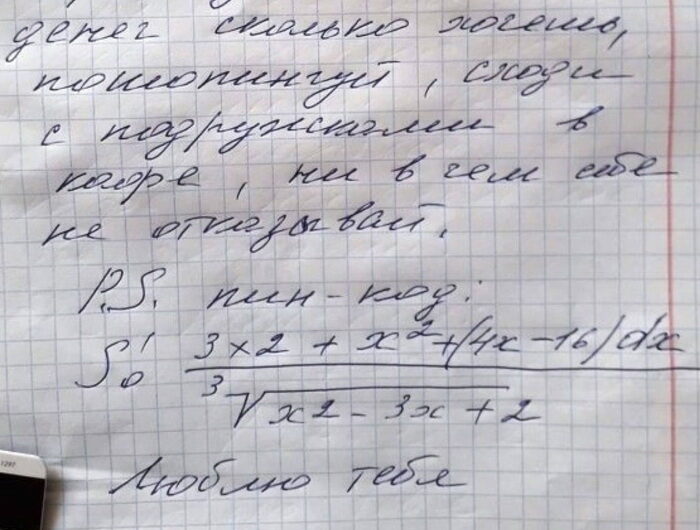 денег сколько хочешь,
пошопингуй, сходи
с подружками в
кафе, ни в чем себе
не отказывай.
P.S. пин-код:
∫₀¹ (3×2 + x² + (4x - 16) dx) / ∛(x2 - 3x + 2)
Люблю тебя